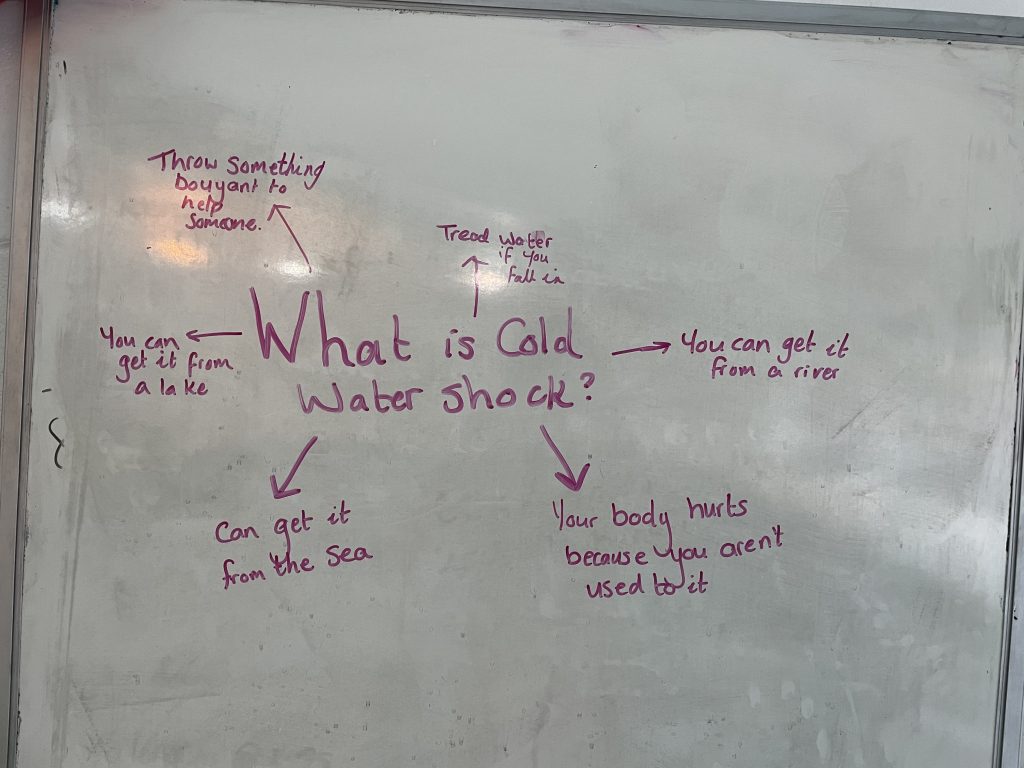 Throw something
bouyant to
help
someone.
Tread water
if you
fall in
You can
get it from
a lake
What is Cold
Water shock?
You can get it
from a river
Can get it
from the sea
Your body hurts
because you aren't
used to it